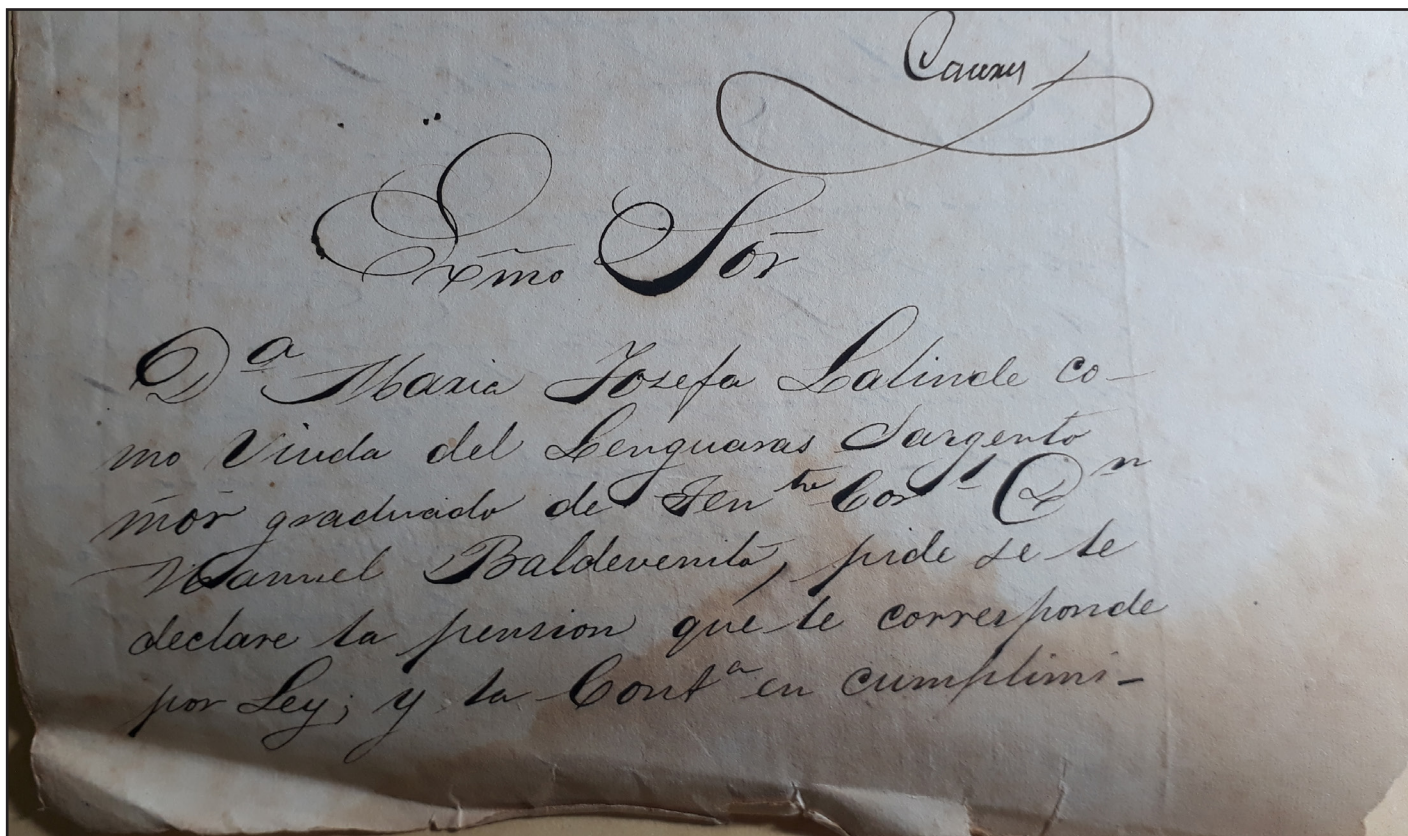 Exmo Sõr
Dª Maria Josefa Lalinde co-
mo Viuda del Lenguaras Sargento
mõr graduado de Tente Corl Dn
Manuel Baldevenito, pide se le
declare la pension que le corresponde
por Ley; y la Contª en cumplimi-